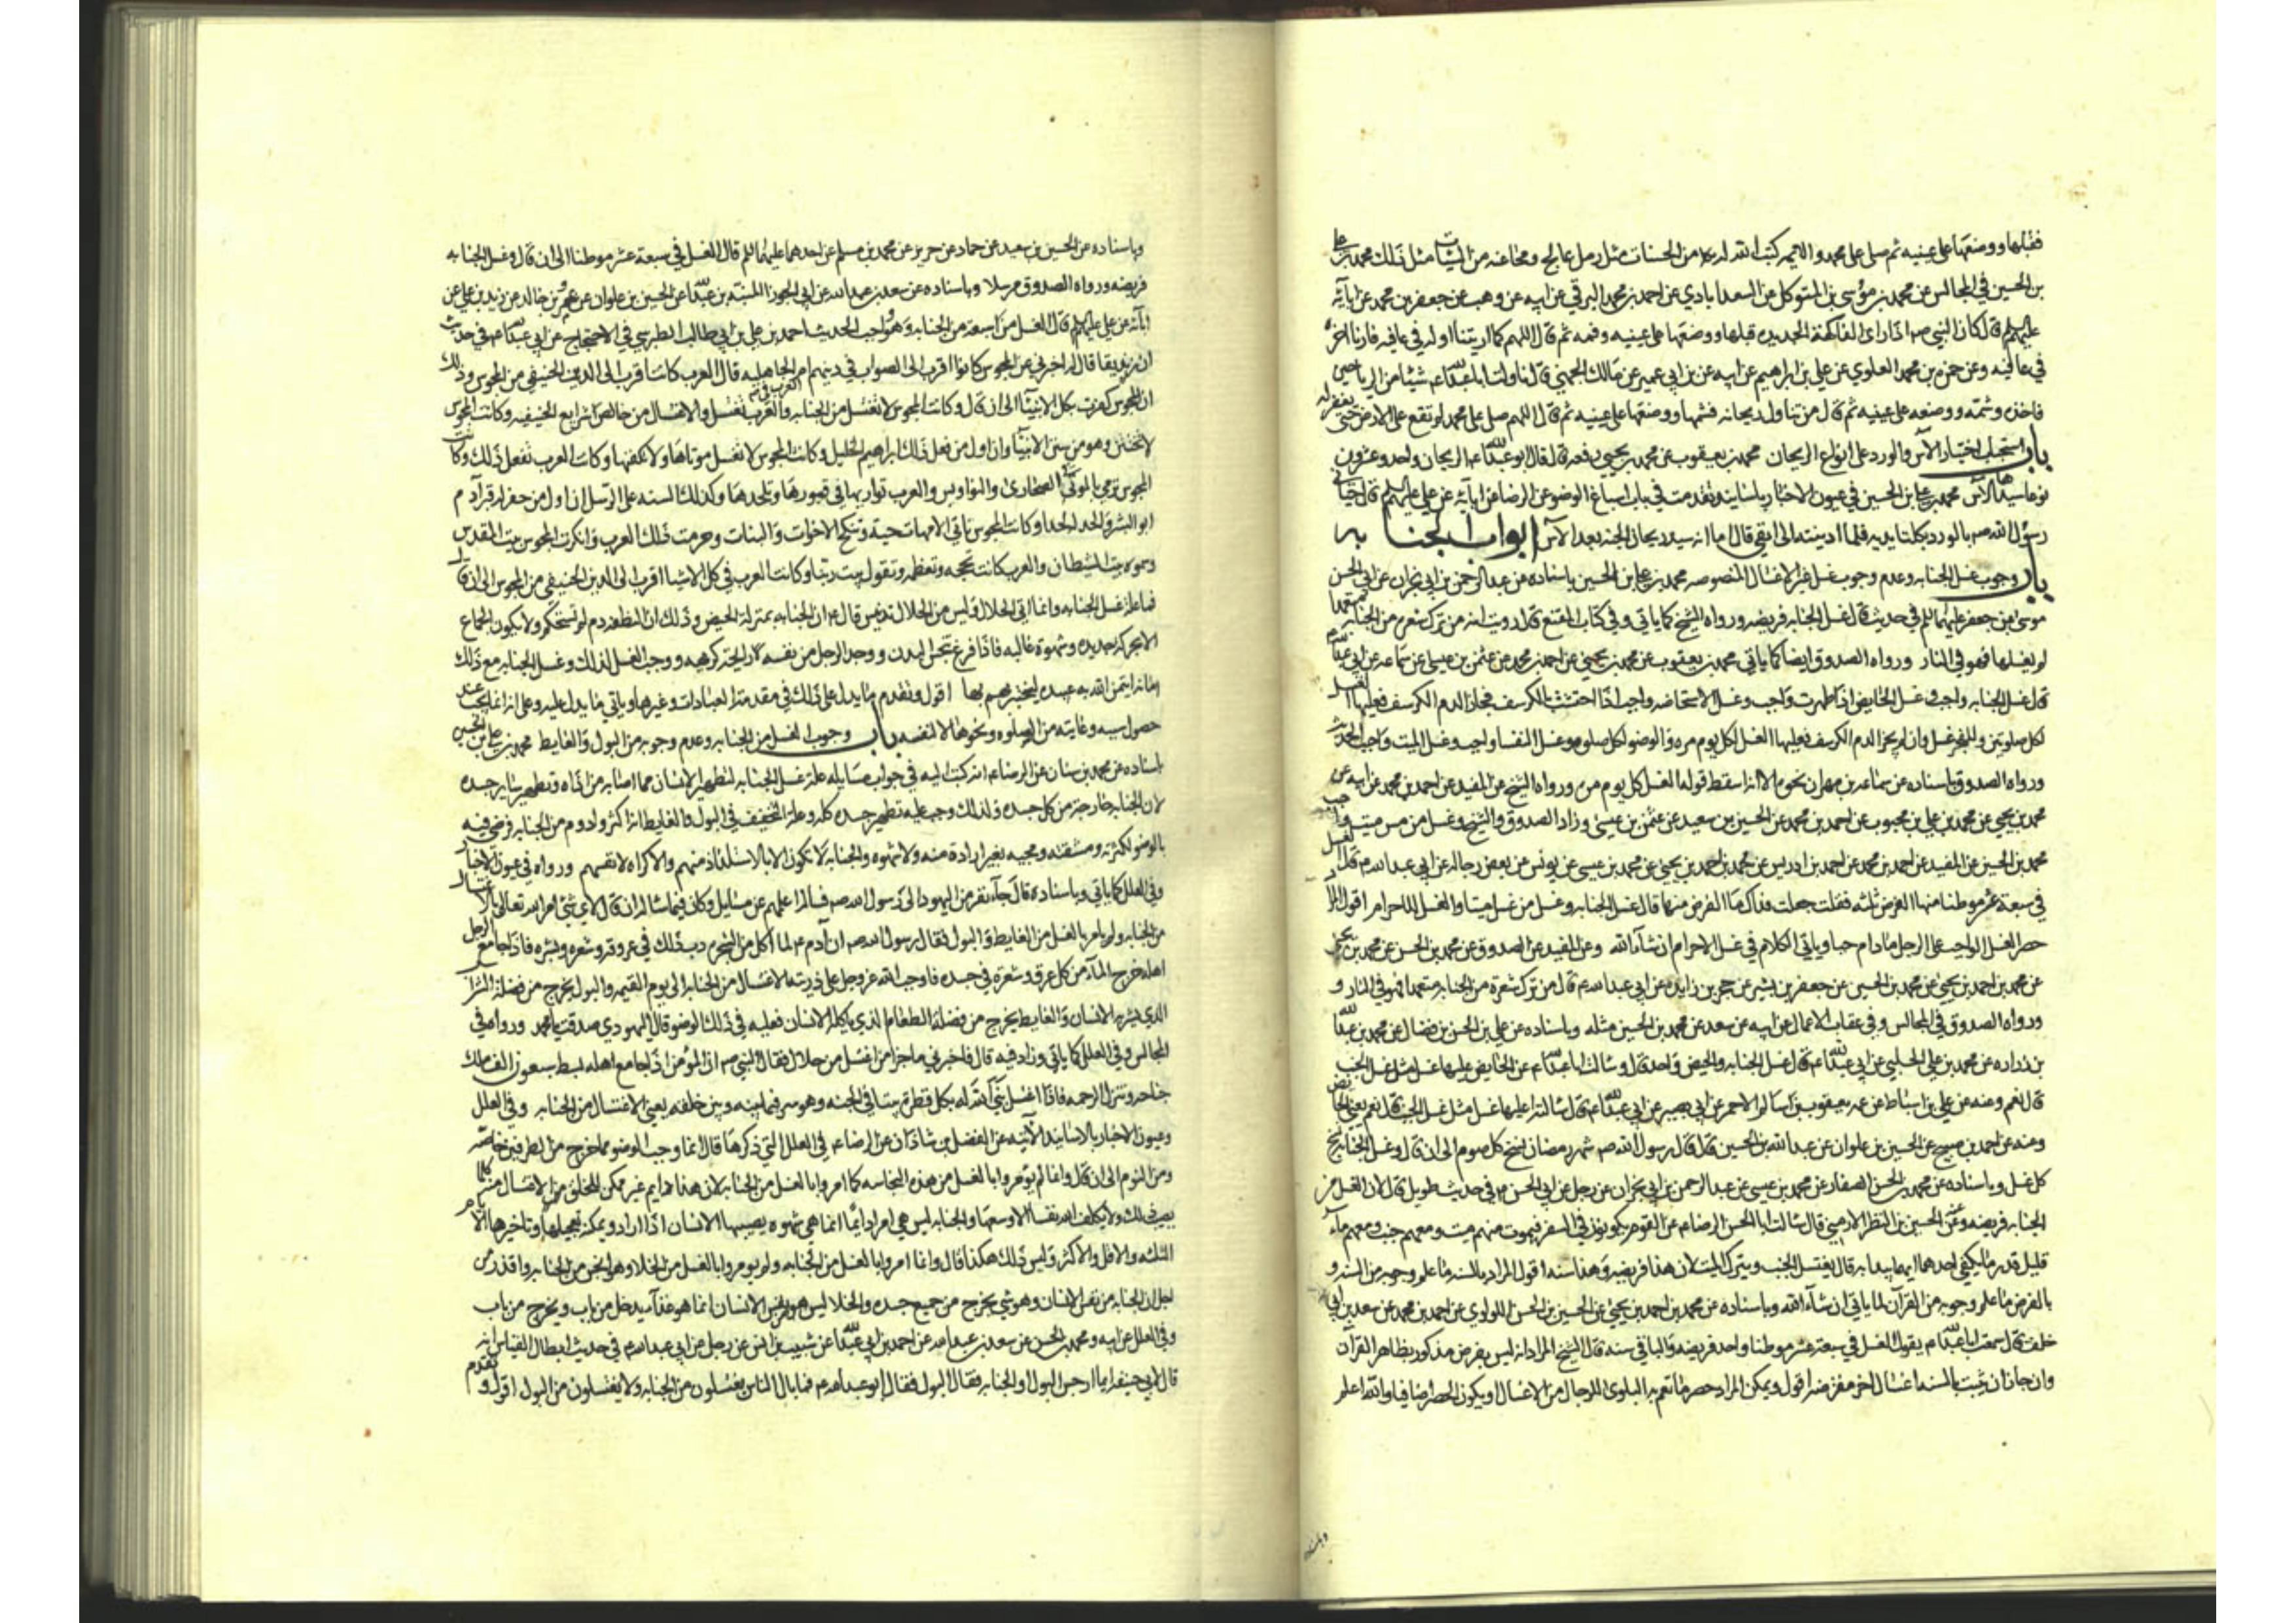 فقبلها ووضعها على عينيه ثم صلى على محمد والائمه كتب الله له من الحسنات مثل رمل عالج ومحا عنه من السيئات مثل ذلك محمد بن علي
بن الحسين في المجالس عن محمد بن موسى بن المتوكل عن السعدابادي عن احمد بن محمد البرقي عن ابيه عن وهب عن جعفر بن محمد عن ابائه
عليهم السلم قال كان النبي ص اذا راى الفاكهة الجديده قبلها ووضعها على عينيه وفمه ثم قال اللهم كما اريتنا اولها في عافيه فارنا اخرها
في عافيه وعن حمزه بن محمد العلوي عن علي بن ابراهيم عن ابيه عن بن ابي عمير عن مالك الجهني قال ناولت ابا عبدالله ع شيئا من الرياحين
فاخذه وشمه ووضعه على عينيه ثم قال من تناول ريحانه فشمها ووضعها على عينيه ثم قال اللهم صل على محمد لم تقع على الارض حتى يغفر له
باب استحباب اختيار الآس والورد على انواع الريحان محمد بن يعقوب عن محمد بن يحيى رفعه قال قال ابو عبدالله ع الريحان واحد وعشرون
نوعا سيدها الآس محمد بن علي بن الحسين في عيون الاخبار باسانيد تقدمت في باب اسباغ الوضوء عن الرضا عن ابائه عن علي عليهم السلم قال حيانى
رسول الله ص بالورد بكلتا يديه فلما ادنيته الى انفي قال اما انه سيد ريحان الجنه بعد الآس ابواب الجنابه
باب وجوب غسل الجنابه وعدم وجوب غسل غير الاغسال المنصوصه محمد بن علي بن الحسين باسناده عن عبد الرحمن بن ابي نجران عن ابي الحسن
موسى بن جعفر عليهما السلم في حديث قال غسل الجنابه فريضه ورواه الشيخ كما ياتي وفي كتاب المقنع قال رويت انه من ترك شعره من الجنابه متعمدا
لم يغسلها فهو في النار ورواه الصدوق ايضا كما ياتي محمد بن يعقوب عن محمد بن يحيى عن احمد بن محمد عن عثمن بن عيسى عن سماعه عن ابي عبدالله ع
قال غسل الجنابه واجب وغسل الحايض اذا طهرت واجب وغسل الاستحاضه واجب اذا احتشت بالكرسف فجاز الدم الكرسف فعليها الغسل
لكل صلوتين وللفجر غسل وان لم يجز الدم الكرسف فعليها الغسل لكل يوم مره والوضوء لكل صلوه وغسل النفساء واجب وغسل الميت واجب الحديث
ورواه الصدوق باسناده عن سماعه بن مهران نحوه الا انه اسقط قوله الغسل كل يوم مره ورواه الشيخ عن المفيد عن احمد بن محمد عن ابيه عن
محمد بن يحيى عن محمد بن علي بن محبوب عن احمد بن محمد عن الحسين بن سعيد عن عثمن بن عيسى وزاد الصدوق والشيخ وغسل من مس ميتا واجب
محمد بن الحسن عن المفيد عن احمد بن محمد عن احمد بن ادريس عن محمد بن احمد بن يحيى عن محمد بن عيسى عن يونس عن بعض رجاله عن ابي عبد الله ع قال الغسل
في سبعة عشر موطنا منها الفرض ثلثه فقلت جعلت فداك ما الفرض منها قال غسل الجنابه وغسل من غسل ميتا والغسل للاحرام اقول المراد
حصر الغسل الواجب على الرجل ما دام حيا وياتي الكلام في غسل الاحرام ان شاء الله وعن المفيد عن الصدوق عن محمد بن الحسن عن محمد بن يحيى
عن محمد بن احمد بن يحيى عن محمد بن الحسين عن جعفر بن بشير عن حجر بن زايده عن ابي عبد الله ع قال من ترك شعرة من الجنابه متعمدا فهو في النار و
ورواه الصدوق في المجالس وفي عقاب الاعمال عن ابيه عن سعد عن محمد بن الحسين مثله وباسناده عن علي بن الحسن بن فضال عن محمد بن عبدالله
بن زراره عن محمد بن علي الحلبي عن ابي عبدالله ع قال غسل الجنابه والحيض واحد قال وسالت ابا عبدالله ع عن الحايض عليها غسل مثل غسل الجنب
قال نعم وعنه عن علي بن اسباط عن عمه يعقوب بن سالم الاحمر عن ابي بصير عن ابي عبدالله ع قال سالته اعليها غسل مثل غسل الجنب قال نعم يعني الحايض
وعنه عن احمد بن صبيح عن الحسين بن علوان عن عبد الله بن الحسين قال قال رسول الله ص شهر رمضان نسخ كل صوم الى ان قال وغسل الجنابه نسخ
كل غسل وباسناده عن محمد بن الحسن الصفار عن محمد بن عيسى عن عبد الرحمن بن ابي نجران عن رجل عن ابي الحسن ع في حديث طويل قال لان الغسل من
الجنابه فريضه وعن الحسين بن النظر الارمني قال سالت ابا الحسن الرضا ع عن القوم يكونون في السفر فيموت منهم ميت ومعهم جنب ومعهم ماء
قليل قدر ما يكفي احدهما ايهما يبدا به قال يغتسل الجنب ويترك الميت لان هذا فريضه وهذا سنه اقول المراد بالسنه ما علم وجوبه من السنه و
بالفرض ما علم وجوبه من القرآن لما ياتي ان شاء الله وباسناده عن محمد بن احمد بن يحيى عن الحسين بن الحسن اللولوي عن احمد بن محمد عن سعد بن ابي
خلف قال سمعت ابا عبدالله ع يقول الغسل في سبعة عشر موطنا واحد فريضه والباقي سنه قال الشيخ المراد انه ليس بفرض مذكور بظاهر القرآن
وان جاز ان يثبت بالسنه اغسال اخر مفترضه اقول ويمكن المراد حصر ما تعم به البلوى للرجال من الاغسال او يكون الحصر اضافيا والله اعلم
وباسناده
وباسناده عن الحسين بن سعيد عن حماد عن حريز عن محمد بن مسلم عن احدهما عليهما السلم قال الغسل في سبعة عشر موطنا الى ان قال وغسل الجنابه
فريضه ورواه الصدوق مرسلا وباسناده عن سعد بن عبد الله عن ابي الجوزا المنبه بن عبدالله عن الحسين بن علوان عن عمرو بن خالد عن زيد بن علي عن
ابائه عن علي عليهم السلم قال الغسل من سبعة من الجنابه وهو واجب الحديث احمد بن علي بن ابي طالب الطبرسي في الاحتجاج عن ابي عبدالله ع في حديث
ان زنديقا قال له اخبرني عن المجوس كانوا اقرب الى الصواب في دينهم ام العرب في الجاهليه قال العرب كانت اقرب الى الدين الحنيفي من المجوس وذلك
ان المجوس كفرت بكل الانبيا الى ان قال وكانت المجوس لا تغتسل من الجنابه والعرب تغتسل والاغتسال من خالص شرايع الحنيفيه وكانت المجوس
لا تختتن وهو من سنن الانبيا وان اول من فعل ذلك ابراهيم الخليل وكانت المجوس لا تغسل موتاها ولا تكفنها وكانت العرب تفعل ذلك وكانت
المجوس ترمي بالموتى في الصحارى والنواويس والعرب تواريها في قبورها وتلحدها وكذلك السنه على الرسل ان اول من حفر له قبر آدم
ابو البشر والحد له لحد وكانت المجوس تاتي الامهات وتنكح الاخوات والبنات وحرمت ذلك العرب وانكرت المجوس بيت المقدس
وسموه بيت الشيطان والعرب كانت تحجه وتعظمه وتقول بيت ربنا وكانت العرب في كل الاشيا اقرب الى الدين الحنيفي من المجوس الى ان قال
فما علة غسل الجنابه وانما اتى الحلال وليس من الحلال تدنيس قال ع ان الجنابه بمنزلة الحيض وذلك ان النطفه دم لم تستحكم ولا يكون الجماع
الا بحركة شديده وشهوة غالبه فاذا فرغ تنفس البدن ووجد الرجل من نفسه رايحة كريهه ووجب الغسل لذلك وغسل الجنابه مع ذلك
امانة ايتمن الله بها عبيده ليختبرهم بها اقول وتقدم ما يدل على ذلك في مقدمة العبادات وغيرها وياتي ما يدل عليه وعلى انه انما يجب عند
حصول سببه وغايته من الصلوه ونحوها لا لنفسه باب وجوب الغسل من الجنابه وعدم وجوبه من البول والغايط محمد بن علي بن الحسين
باسناده عن محمد بن سنان عن الرضا ع انه كتب اليه في جواب مسايله علة غسل الجنابه لتطهير الانسان مما اصابه من اذاه وتطهير ساير جسده
لان الجنابه خارجة من كل جسده فلذلك وجب عليه تطهير جسده كله وعلة التخفيف في البول والغايط انه اكثر وادوم من الجنابه فرضي فيه
بالوضوء لكثرته ومشقته ومجيئه بغير اراده منه ولا شهوه والجنابه لا تكون الا بالاستلذاذ منهم والاكراه لانفسهم ورواه في عيون الاخبار
وفي العلل كما ياتي وباسناده قال جآء نفر من اليهود الى رسول الله ص فساله اعلمهم عن مسايل وكان فيما ساله ان قال لاي شئ امر الله تعالى بالاغتسال
من الجنابه ولم يامر بالغسل من الغايط والبول فقال رسول الله ص ان آدم ع لما اكل من الشجره دب ذلك في عروقه وشعره وبشره فاذا جامع الرجل
اهله خرج المآء من كل عرق وشعرة في جسده فاوجب الله عز وجل على ذريته الاغتسال من الجنابه الى يوم القيمه والبول يخرج من فضلة الشراب
الذي يشربه الانسان والغايط يخرج من فضلة الطعام الذي ياكله الانسان فعليه في ذلك الوضوء قال اليهودي صدقت يا محمد ورواه في
المجالس وفي العلل كما ياتي وزاد فيه قال فاخبرني ما جزا من اغتسل من حلال فقال النبي ص ان المؤمن اذا جامع اهله بسط سبعون الف ملك
جناحه وتنزل الرحمه فاذا اغتسل بنى الله له بكل قطرة بيتا في الجنه وهو سر فيما بينه وبين خلقه يعني الاغتسال من الجنابه وفي العلل
وعيون الاخبار بالاسانيد الآتيه عن الفضل بن شاذان عن الرضا ع في العلل التي ذكرها قال انما وجب الوضوء مما خرج من الطرفين خاصه
ومن النوم الى ان قال وانما لم يؤمروا بالغسل من هذه النجاسه كما امروا بالغسل من الجنابه لان هذا شئ دايم غير ممكن للخلق الاغتسال منه كلما
يصيب ذلك ولا يكلف الله نفسا الا وسعها والجنابه ليس هي امرا دايما انما هي شهوه يصيبها الانسان اذا اراد ويمكنه تعجيلها وتاخيرها الايام
الثلثه والاقل والاكثر وليس ذلك هكذا قال وانما امروا بالغسل من الجنابه ولم يومروا بالغسل من الخلا وهو انجس من الجنابه واقذر من
اجل ان الجنابه من نفس الانسان وهو شي يخرج من جميع جسده والخلا ليس هو من نفس الانسان انما هو غذآء يدخل من باب ويخرج من باب
وفي العلل عن ابيه ومحمد بن الحسن عن سعد بن عبد الله عن احمد بن ابي عبدالله عن شبيب بن انس عن رجل عن ابي عبد الله ع في حديث ابطال القياس انه
قال لابي حنيفه ايما ارجس البول او الجنابه فقال البول فقال ابو عبد الله ع فما بال الناس يغتسلون من الجنابه ولا يغتسلون من البول اقول وتقدم